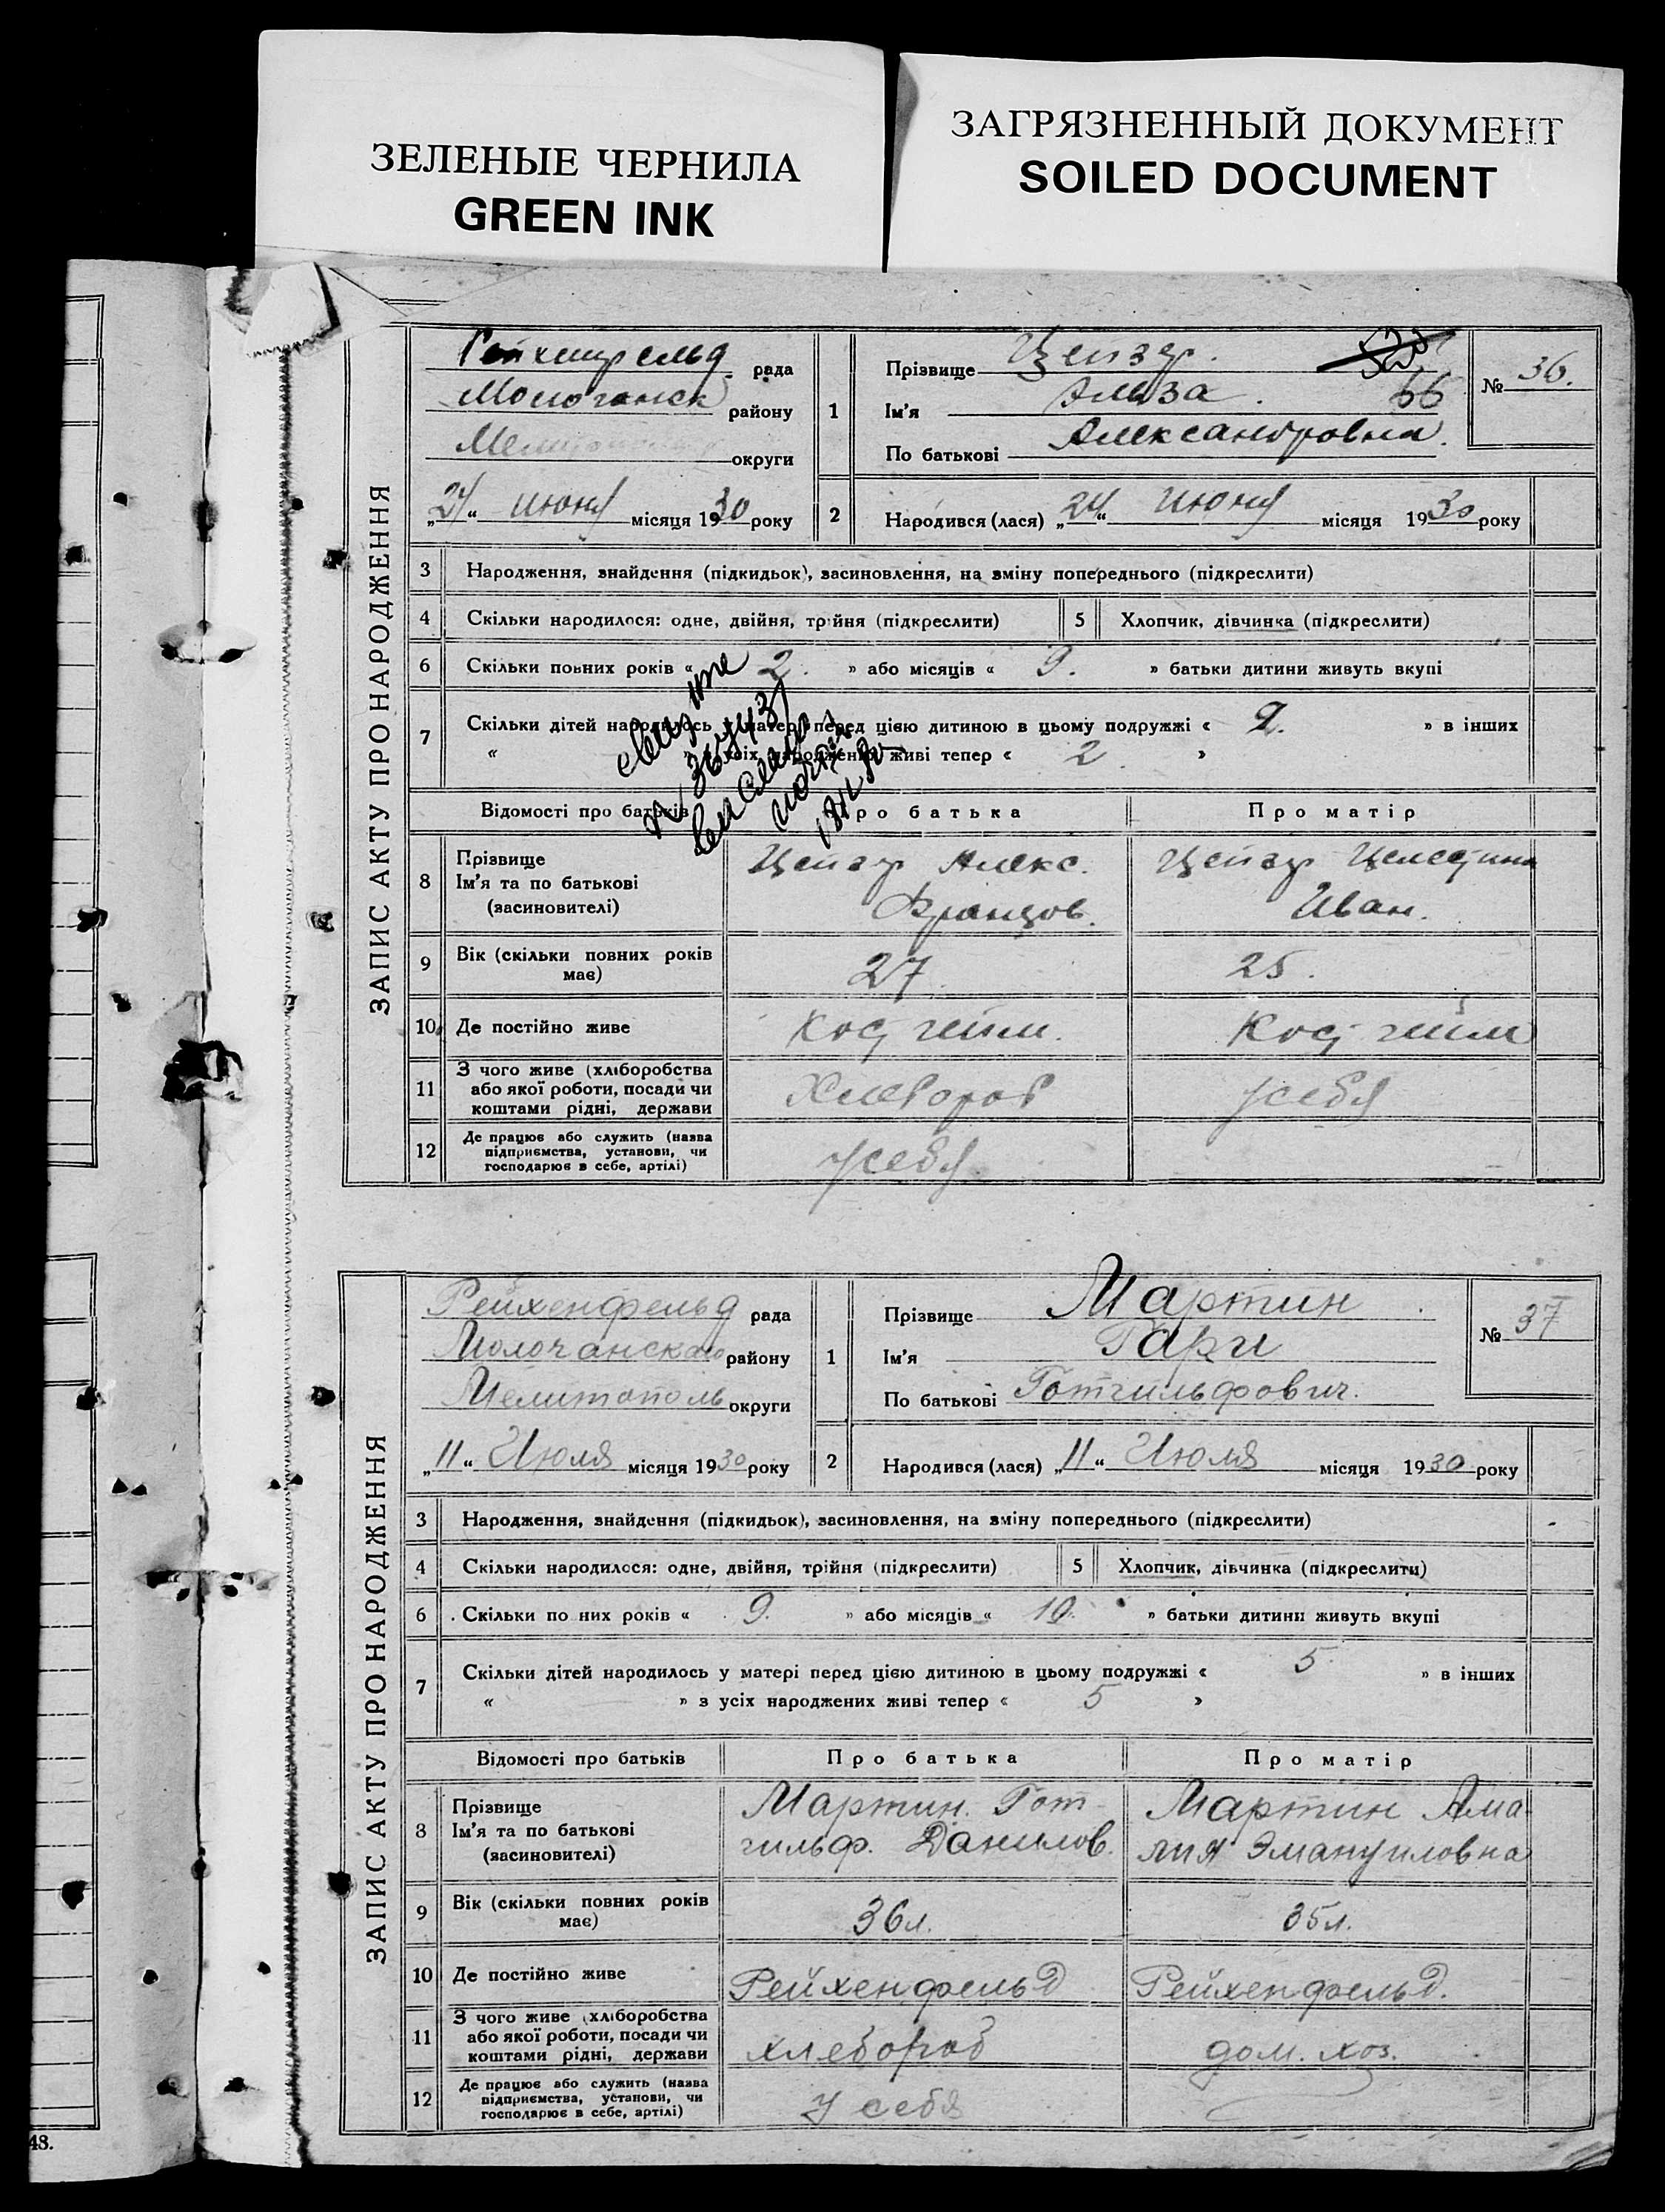 ЗЕЛЕНЫЕ ЧЕРНИЛА
GREEN INK
ЗАГРЯЗНЕННЫЙ ДОКУМЕНТ
SOILED DOCUMENT
ЗАПИС АКТУ ПРО НАРОДЖЕННЯ
рада
району
округи
„24“ июня місяця 1930 року
1
Прізвище Цейзер.
Ім'я Эльза. 66
По батькові Александровна.
№ 36.
2
Народився (лася) „24“ июня місяця 1930 року
3 Народження, знайдення (підкидьок), засиновлення, на зміну попереднього (підкреслити)
4 Скільки народилося: одне, двійня, трійня (підкреслити)
5 Хлопчик, дівчинка (підкреслити)
6 Скільки повних років « 2. » або місяців « 9. » батьки дитини живуть вкупі
7 Скільки дітей народилось у матері перед цією дитиною в цьому подружжі « 2. » в інших
« » з усіх народжених живі тепер « 2. »
Відомості про батьків Про батька Про матір
8 Прізвище
Ім'я та по батькові
(засиновителі)
Цейзер Алекс.
Францов.
Цейзер Целестина
Иван.
9 Вік (скільки повних років має) 27. 25.
10 Де постійно живе Костгейм. Костгейм
11 З чого живе (хліборобства або якої роботи, посади чи коштами рідні, держави Хлебороб у себя
12 Де працює або служить (назва підприємства, установи, чи господарює в себе, артілі) у себя
ЗАПИС АКТУ ПРО НАРОДЖЕННЯ
Рейхенфельд рада
Молочанского району
Мелитополь округи
„11“ Июля місяця 1930 року
1
Прізвище Мартин
Ім'я Гари
По батькові Готгильфович.
№ 37
2
Народився (лася) „11“ Июля місяця 1930 року
3 Народження, знайдення (підкидьок), засиновлення, на зміну попереднього (підкреслити)
4 Скільки народилося: одне, двійня, трійня (підкреслити)
5 Хлопчик, дівчинка (підкреслити)
6 Скільки повних років « 9. » або місяців « 10. » батьки дитини живуть вкупі
7 Скільки дітей народилось у матері перед цією дитиною в цьому подружжі « 5 » в інших
« » з усіх народжених живі тепер « 5 »
Відомості про батьків Про батька Про матір
8 Прізвище
Ім'я та по батькові
(засиновителі)
Мартин. Гот-
гильф. Данилов.
Мартин Ама-
лия Эмануиловна
9 Вік (скільки повних років має) 36 л. 35 л.
10 Де постійно живе Рейхенфельд Рейхенфельд.
11 З чого живе (хліборобства або якої роботи, посади чи коштами рідні, держави хлебороб дом. хоз.
12 Де працює або служить (назва підприємства, установи, чи господарює в себе, артілі) у себя
48.